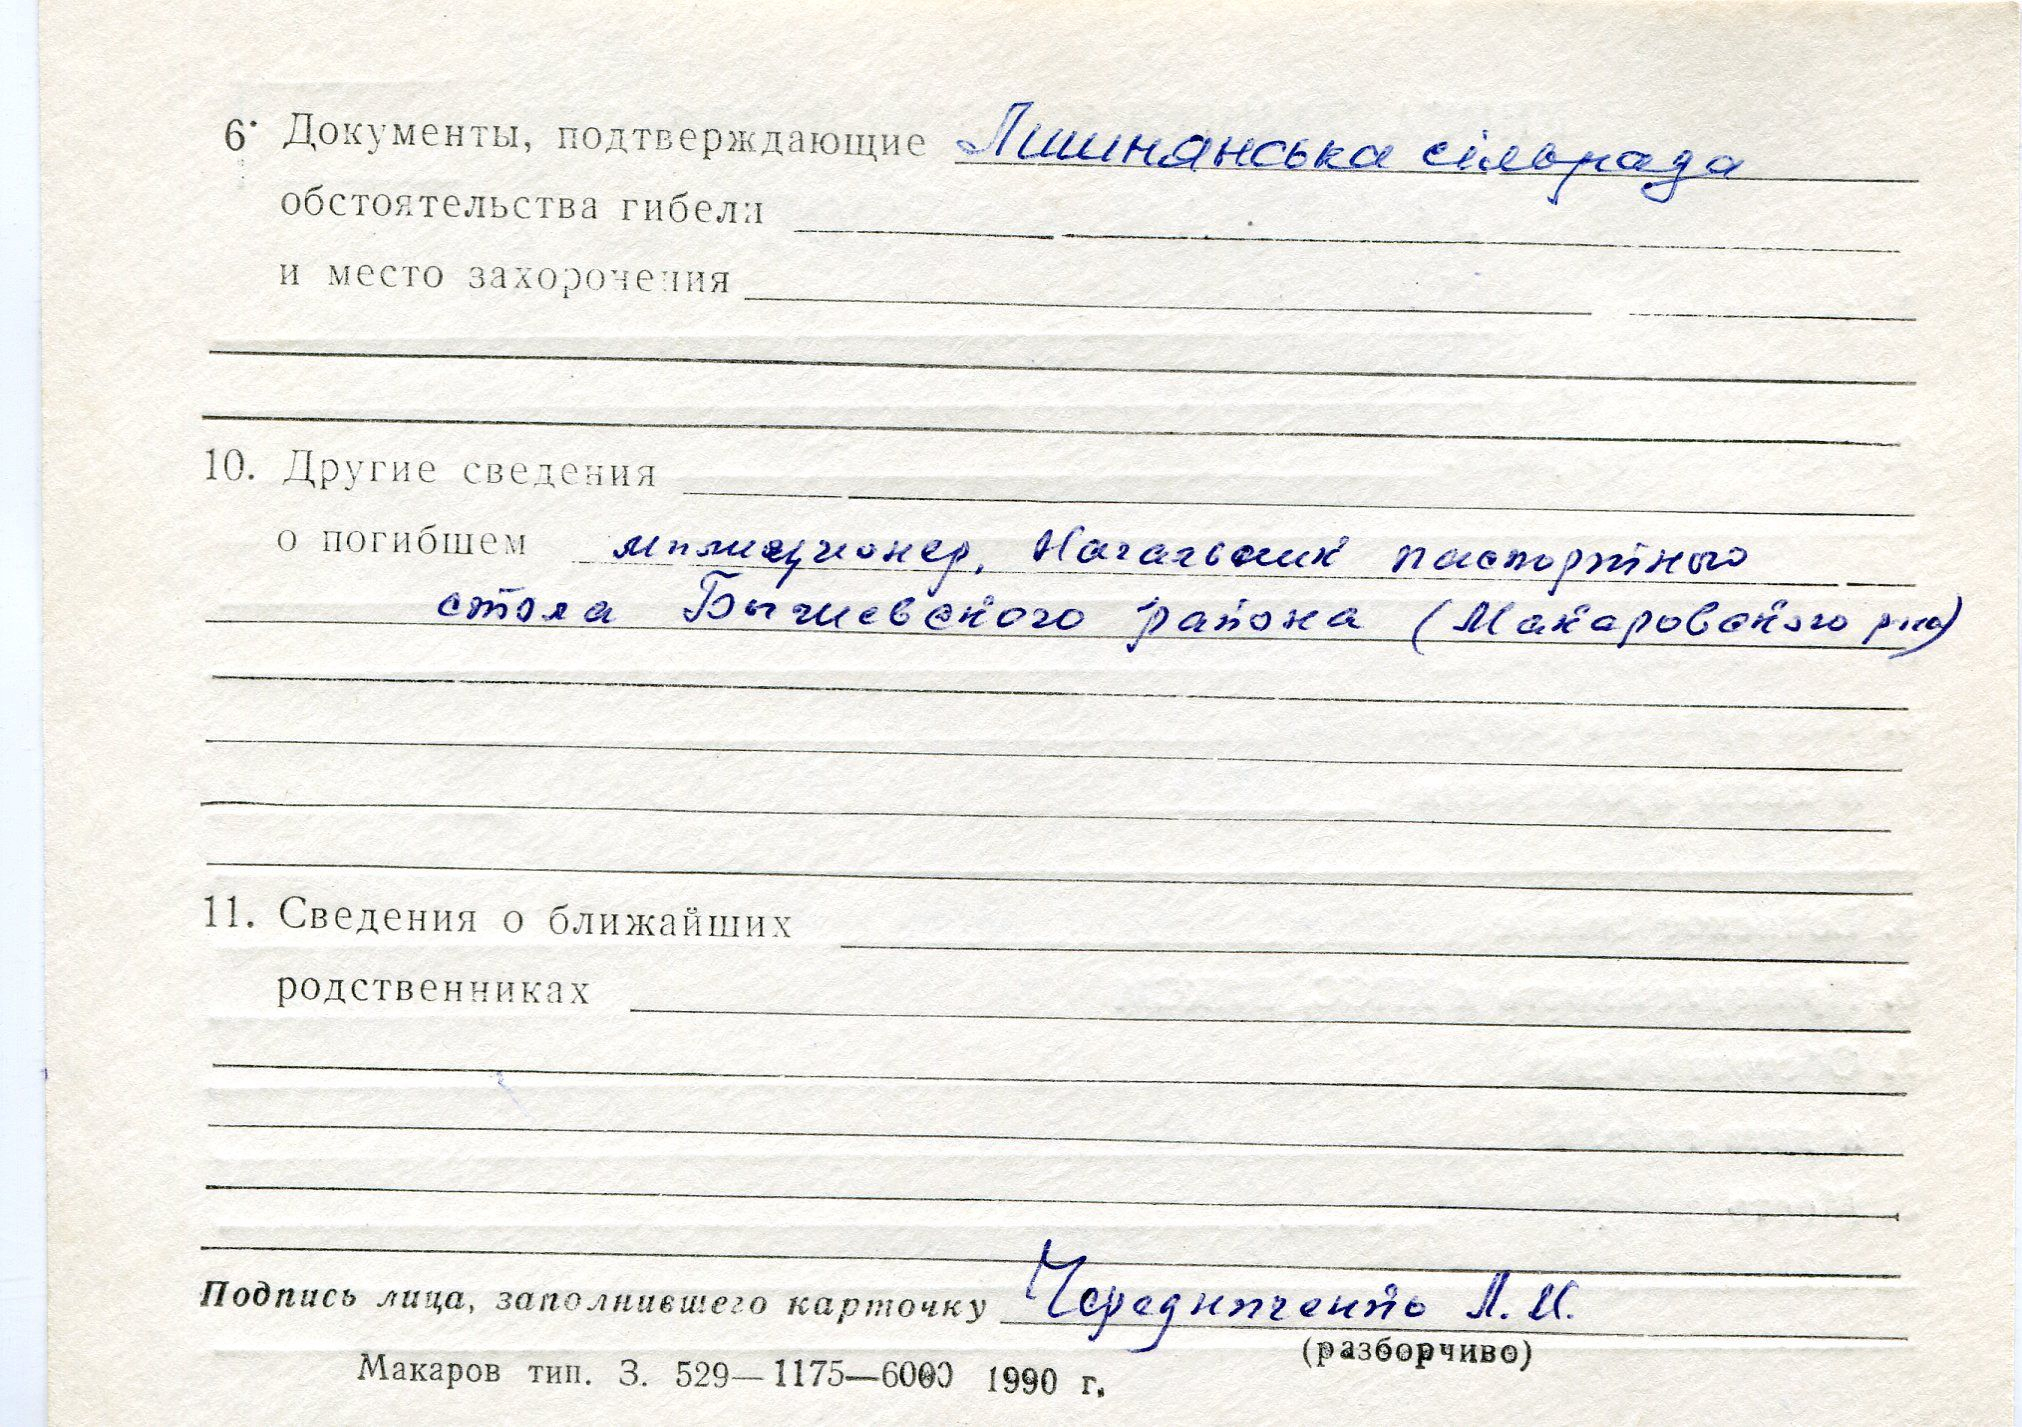 6. Документы, подтверждающие Лишнянська сільрада
обстоятельства гибели
и место захоронения
10. Другие сведения
о погибшем милиционер, Начальник паспортного
стола Бычевского района (Макаровского р-на)
11. Сведения о ближайших
родственниках
Подпись лица, заполнившего карточку Чередниченко Л. И.
(разборчиво)
Макаров тип. З. 529—1175—6000 1990 г.